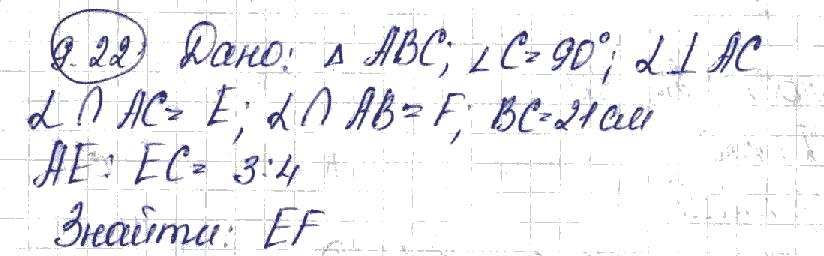 9.22 Дано: △ ABC; ∠C = 90°; α ⊥ AC
α ∩ AC = E; α ∩ AB = F; BC = 21 см
AE : EC = 3:4
Знайти: EF